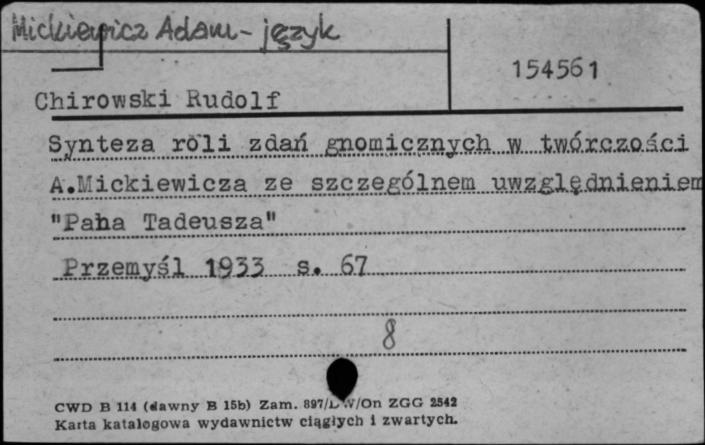 Mickiewicz Adam - język
154561
Chirowski Rudolf
Synteza roli zdań gnomicznych w twórczości
A.Mickiewicza ze szczególnem uwzględnieniem
"Pana Tadeusza"
Przemyśl 1933 s. 67
8
CWD B 114 (dawny B 15b) Zam. 897/DW/On ZGG 2542
Karta katalogowa wydawnictw ciągłych i zwartych.